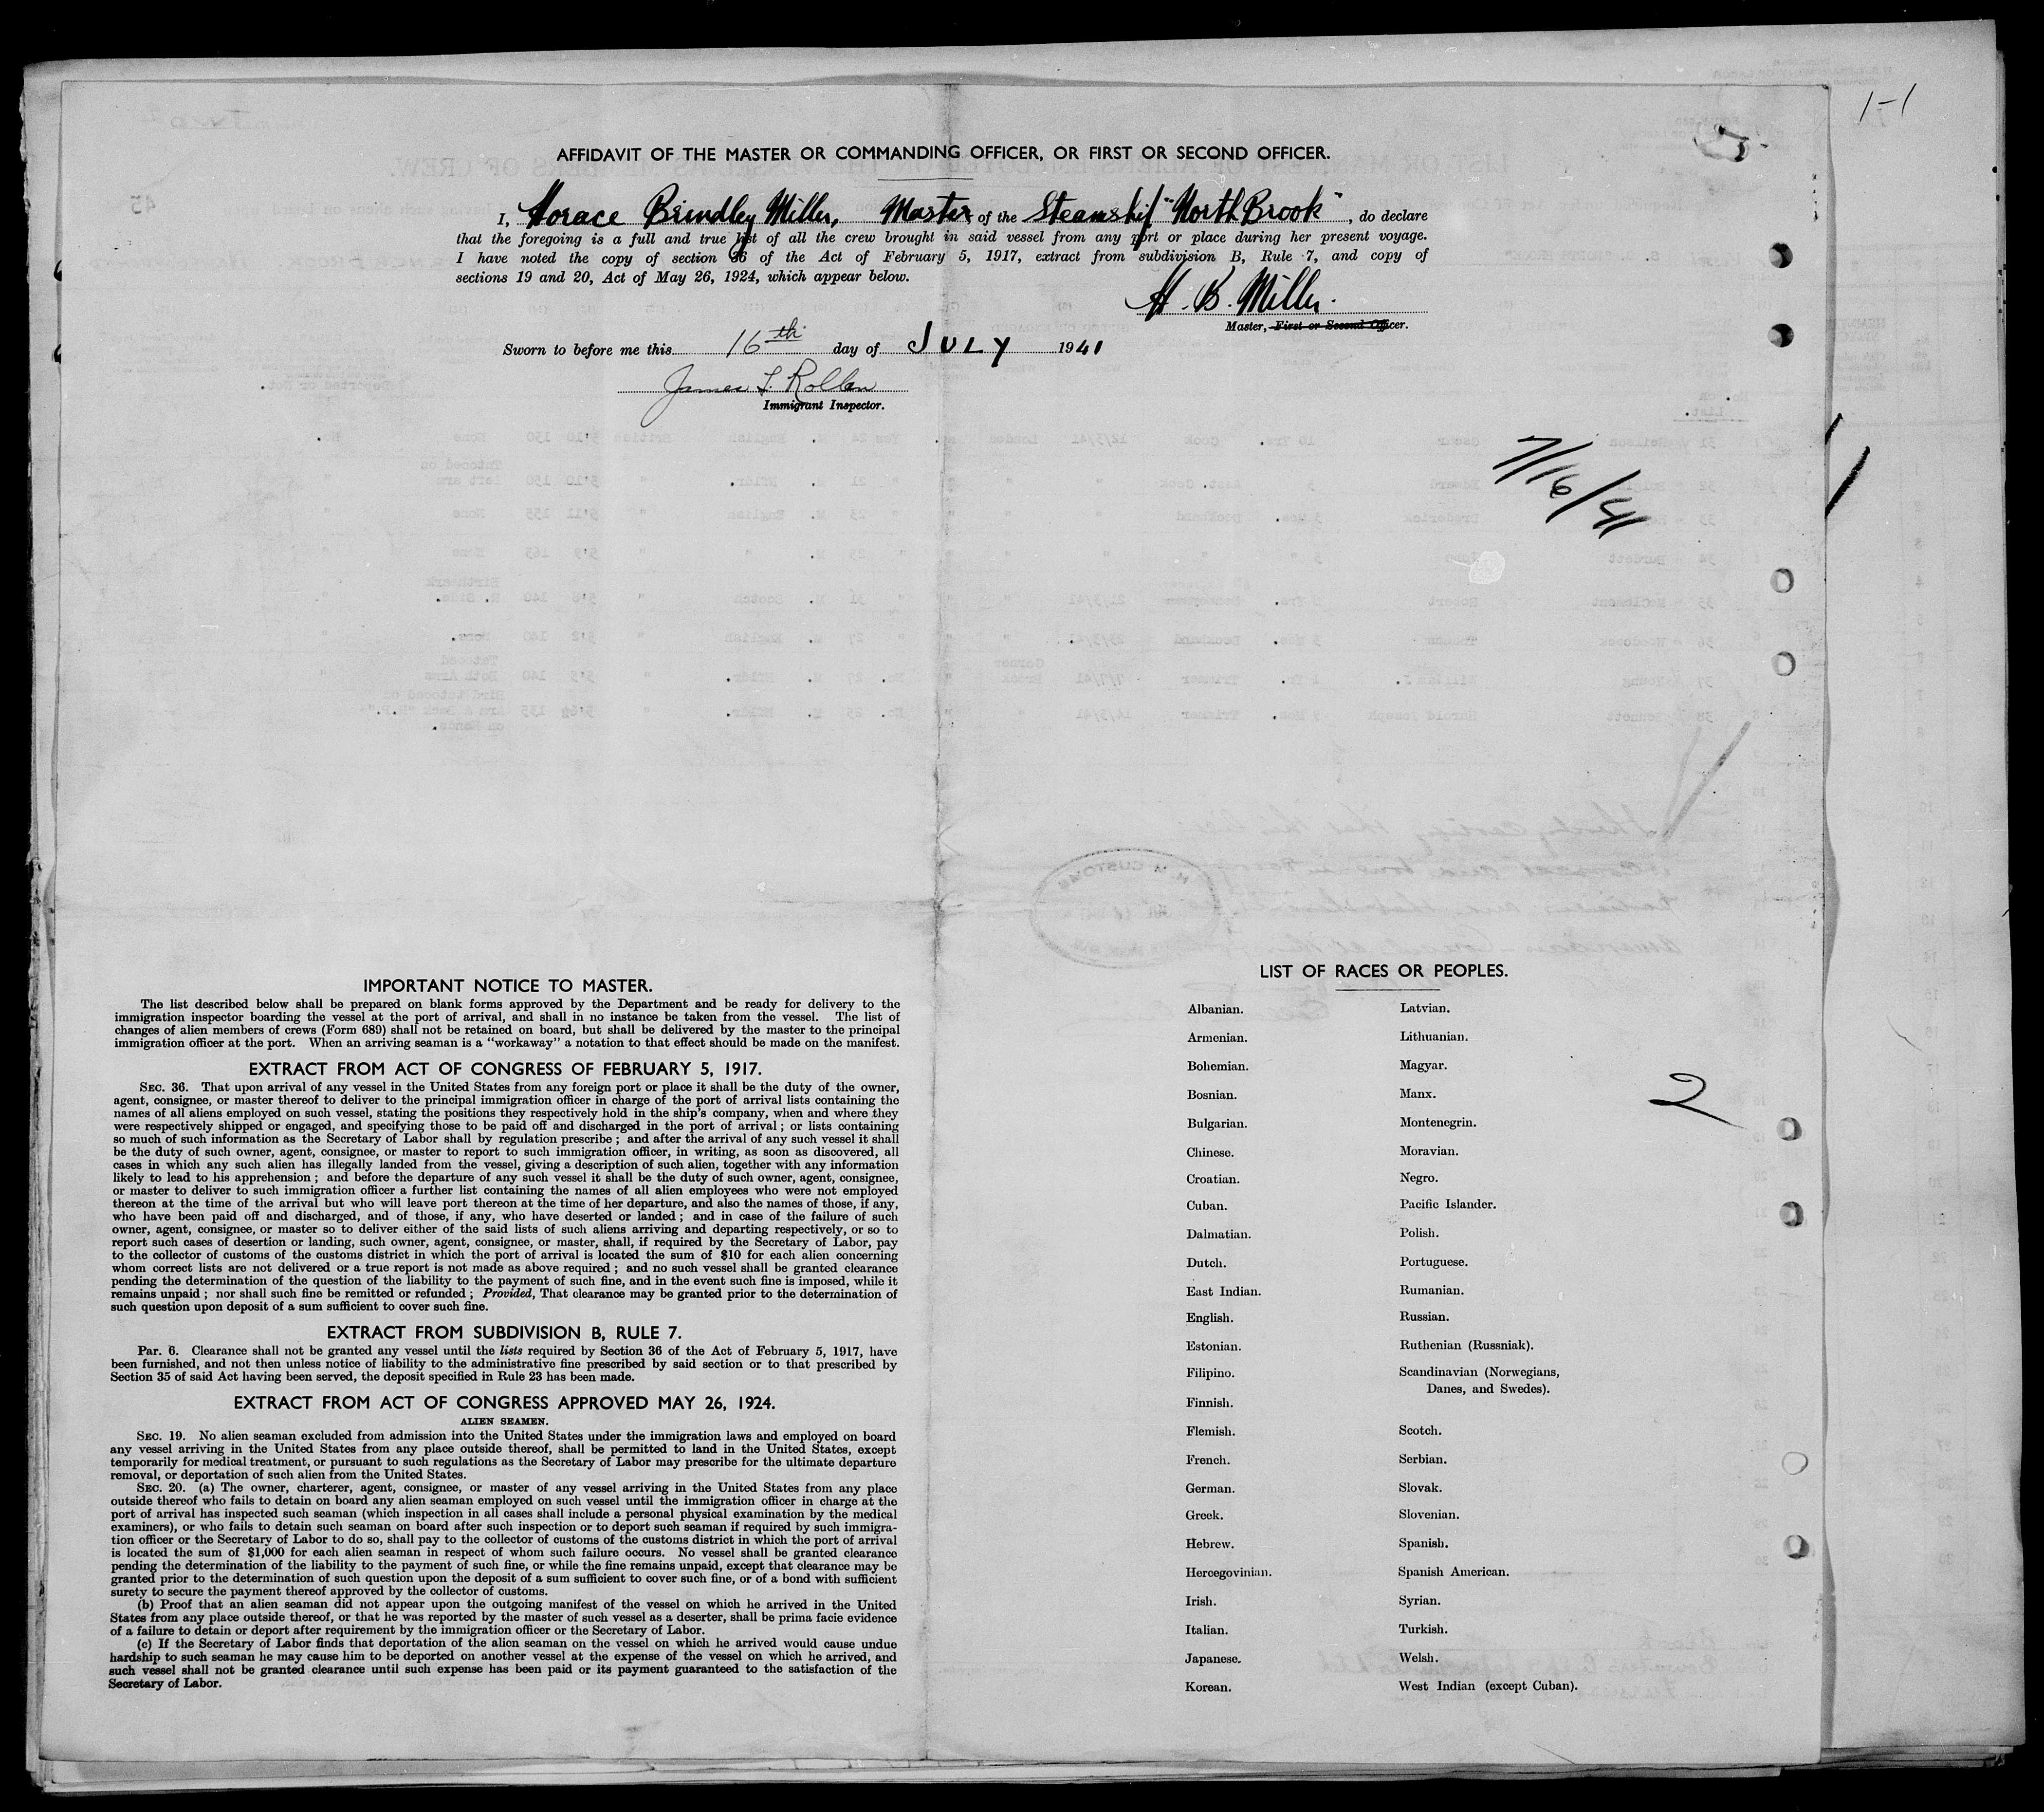 1-1
AFFIDAVIT OF THE MASTER OR COMMANDING OFFICER, OR FIRST OR SECOND OFFICER.
I, Horace Brindley Miller, Master of the Steamship "North Brook", do declare
that the foregoing is a full and true list of all the crew brought in said vessel from any port or place during her present voyage.
I have noted the copy of section 36 of the Act of February 5, 1917, extract from subdivision B, Rule 7, and copy of
sections 19 and 20, Act of May 26, 1924, which appear below.
H. B. Miller.
Master, First or Second Officer.
Sworn to before me this 16th day of JULY 1941
James L. Rollen
Immigrant Inspector.
7/16/41
IMPORTANT NOTICE TO MASTER.
The list described below shall be prepared on blank forms approved by the Department and be ready for delivery to the
immigration inspector boarding the vessel at the port of arrival, and shall in no instance be taken from the vessel. The list of
changes of alien members of crews (Form 689) shall not be retained on board, but shall be delivered by the master to the principal
immigration officer at the port. When an arriving seaman is a "workaway" a notation to that effect should be made on the manifest.
EXTRACT FROM ACT OF CONGRESS OF FEBRUARY 5, 1917.
SEC. 36. That upon arrival of any vessel in the United States from any foreign port or place it shall be the duty of the owner,
agent, consignee, or master thereof to deliver to the principal immigration officer in charge of the port of arrival lists containing the
names of all aliens employed on such vessel, stating the positions they respectively hold in the ship's company, when and where they
were respectively shipped or engaged, and specifying those to be paid off and discharged in the port of arrival; or lists containing
so much of such information as the Secretary of Labor shall by regulation prescribe; and after the arrival of any such vessel it shall
be the duty of such owner, agent, consignee, or master to report to such immigration officer, in writing, as soon as discovered, all
cases in which any such alien has illegally landed from the vessel, giving a description of such alien, together with any information
likely to lead to his apprehension; and before the departure of any such vessel it shall be the duty of such owner, agent, consignee,
or master to deliver to such immigration officer a further list containing the names of all alien employees who were not employed
thereon at the time of the arrival but who will leave port thereon at the time of her departure, and also the names of those, if any,
who have been paid off and discharged, and of those, if any, who have deserted or landed; and in case of the failure of such
owner, agent, consignee, or master so to deliver either of the said lists of such aliens arriving and departing respectively, or so to
report such cases of desertion or landing, such owner, agent, consignee, or master, shall, if required by the Secretary of Labor, pay
to the collector of customs of the customs district in which the port of arrival is located the sum of $10 for each alien concerning
whom correct lists are not delivered or a true report is not made as above required; and no such vessel shall be granted clearance
pending the determination of the question of the liability to the payment of such fine, and in the event such fine is imposed, while it
remains unpaid; nor shall such fine be remitted or refunded; Provided, That clearance may be granted prior to the determination of
such question upon deposit of a sum sufficient to cover such fine.
EXTRACT FROM SUBDIVISION B, RULE 7.
Par. 6. Clearance shall not be granted any vessel until the lists required by Section 36 of the Act of February 5, 1917, have
been furnished, and not then unless notice of liability to the administrative fine prescribed by said section or to that prescribed by
Section 35 of said Act having been served, the deposit specified in Rule 23 has been made.
EXTRACT FROM ACT OF CONGRESS APPROVED MAY 26, 1924.
ALIEN SEAMEN.
SEC. 19. No alien seaman excluded from admission into the United States under the immigration laws and employed on board
any vessel arriving in the United States from any place outside thereof, shall be permitted to land in the United States, except
temporarily for medical treatment, or pursuant to such regulations as the Secretary of Labor may prescribe for the ultimate departure
removal, or deportation of such alien from the United States.
SEC. 20. (a) The owner, charterer, agent, consignee, or master of any vessel arriving in the United States from any place
outside thereof who fails to detain on board any alien seaman employed on such vessel until the immigration officer in charge at the
port of arrival has inspected such seaman (which inspection in all cases shall include a personal physical examination by the medical
examiners), or who fails to detain such seaman on board after such inspection or to deport such seaman if required by such immigra-
tion officer or the Secretary of Labor to do so, shall pay to the collector of customs of the customs district in which the port of arrival
is located the sum of $1,000 for each alien seaman in respect of whom such failure occurs. No vessel shall be granted clearance
pending the determination of the liability to the payment of such fine, or while the fine remains unpaid, except that clearance may be
granted prior to the determination of such question upon the deposit of a sum sufficient to cover such fine, or of a bond with sufficient
surety to secure the payment thereof approved by the collector of customs.
(b) Proof that an alien seaman did not appear upon the outgoing manifest of the vessel on which he arrived in the United
States from any place outside thereof, or that he was reported by the master of such vessel as a deserter, shall be prima facie evidence
of a failure to detain or deport after requirement by the immigration officer or the Secretary of Labor.
(c) If the Secretary of Labor finds that deportation of the alien seaman on the vessel on which he arrived would cause undue
hardship to such seaman he may cause him to be deported on another vessel at the expense of the vessel on which he arrived, and
such vessel shall not be granted clearance until such expense has been paid or its payment guaranteed to the satisfaction of the
Secretary of Labor.
LIST OF RACES OR PEOPLES.
Albanian.
Armenian.
Bohemian.
Bosnian.
Bulgarian.
Chinese.
Croatian.
Cuban.
Dalmatian.
Dutch.
East Indian.
English.
Estonian.
Filipino.
Finnish.
Flemish.
French.
German.
Greek.
Hebrew.
Hercegovinian.
Irish.
Italian.
Japanese.
Korean.
Latvian.
Lithuanian.
Magyar.
Manx.
Montenegrin.
Moravian.
Negro.
Pacific Islander.
Polish.
Portuguese.
Rumanian.
Russian.
Ruthenian (Russniak).
Scandinavian (Norwegians,
Danes, and Swedes).
Scotch.
Serbian.
Slovak.
Slovenian.
Spanish.
Spanish American.
Syrian.
Turkish.
Welsh.
West Indian (except Cuban).
2